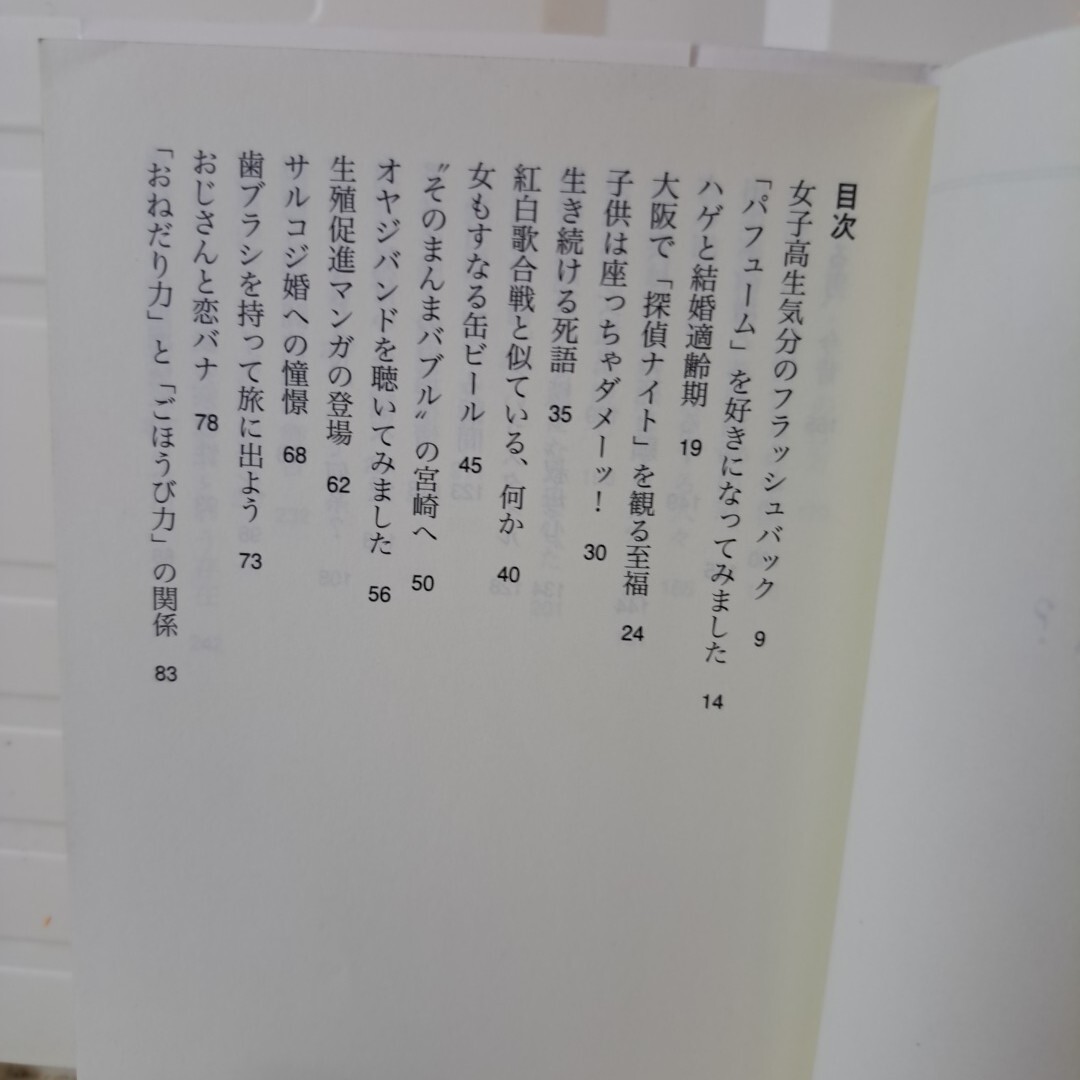 目次
女子高生気分のフラッシュバック 9
「パフューム」を好きになってみました 14
ハゲと結婚適齢期 19
大阪で「探偵ナイト」を観る至福 24
子供は座っちゃダメーッ！ 30
生き続ける死語 35
紅白歌合戦と似ている、何か 40
女もすなる缶ビール 45
〝そのまんまバブル〟の宮崎へ 50
オヤジバンドを聴いてみました 56
生殖促進マンガの登場 62
サルコジ婚への憧憬 68
歯ブラシを持って旅に出よう 73
おじさんと恋バナ 78
「おねだり力」と「ごほうび力」の関係 83